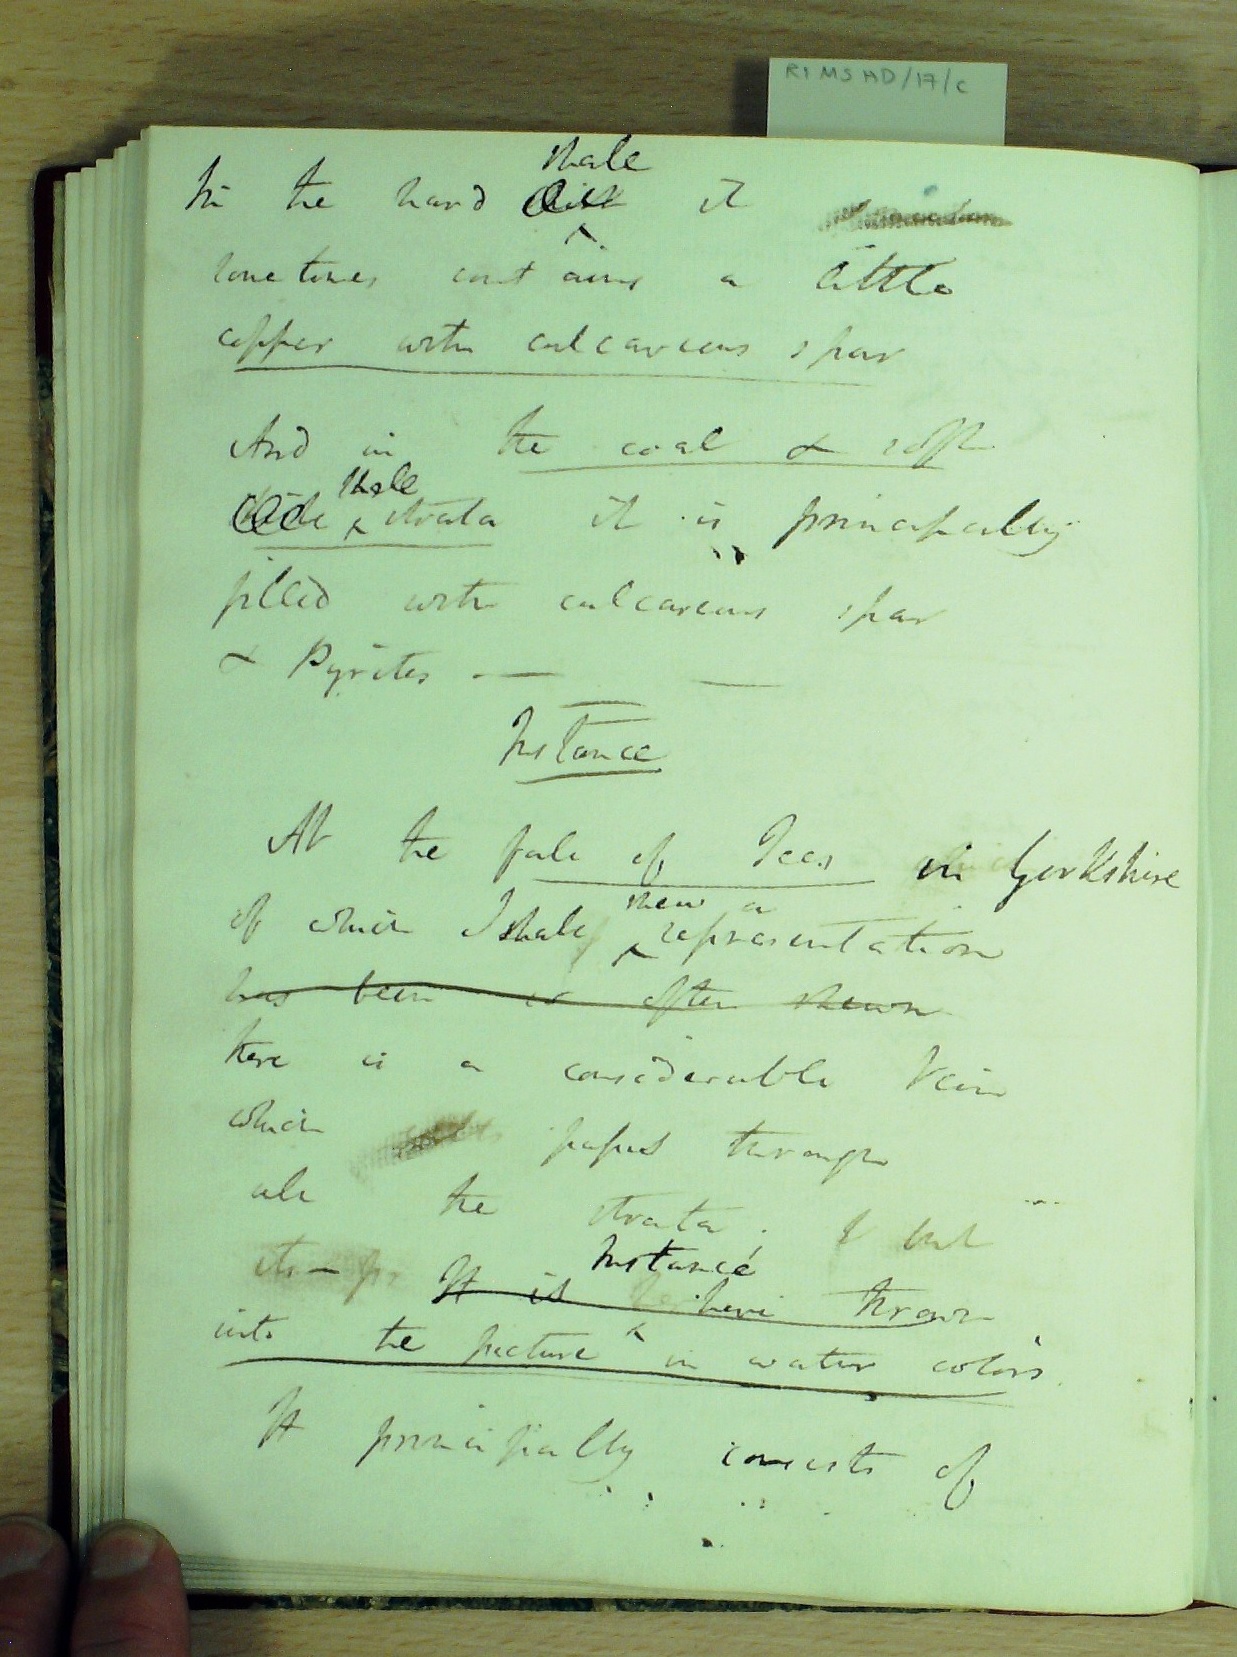 RI MS HD/17/C
shale
In the hard it
sometimes contains a little
copper with calcareous spar
And in the coal & soft
shale
strata it is principally
filled with calcareous spar
& Pyrites —
Instance
At the fall of Tees in Yorkshire
shew a
of which I shall representation
has been so often shewn
there is a considerable Vein
which passes through
all the strata. & but
its
Instance
It is here thrown
into the picture in water colors
It principally consists of